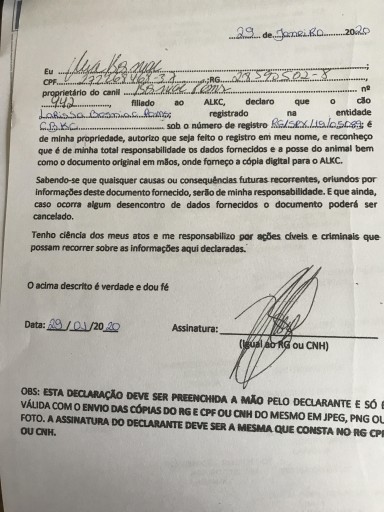 29 de Janeiro 2020
Eu
CPF ;RG 28390502-8,
proprietário do canil nº
942, filiado ao ALKC, declaro que o cão
registrado na entidade
CBKC sob o número de registro é
de minha propriedade, autorizo que seja feito o registro em meu nome, e reconheço
que é de minha total responsabilidade os dados fornecidos e a posse do animal bem
como o documento original em mãos, onde forneço a cópia digital para o ALKC.
Sabendo-se que quaisquer causas ou consequências futuras recorrentes, oriundos por
informações deste documento fornecido, serão de minha responsabilidade. E que ainda,
caso ocorra algum desencontro de dados fornecidos o documento poderá ser
cancelado.
Tenho ciência dos meus atos e me responsabilizo por ações cíveis e criminais que
possam recorrer sobre as informações aqui declaradas.
O acima descrito é verdade e dou fé
Data: 29/01/2020 Assinatura:
(Igual ao RG ou CNH)
OBS: ESTA DECLARAÇÃO DEVE SER PREENCHIDA A MÃO PELO DECLARANTE E SÓ É
VÁLIDA COM O ENVIO DAS CÓPIAS DO RG E CPF OU CNH DO MESMO EM JPEG, PNG OU
FOTO. A ASSINATURA DO DECLARANTE DEVE SER A MESMA QUE CONSTA NO RG CPF
OU CNH.